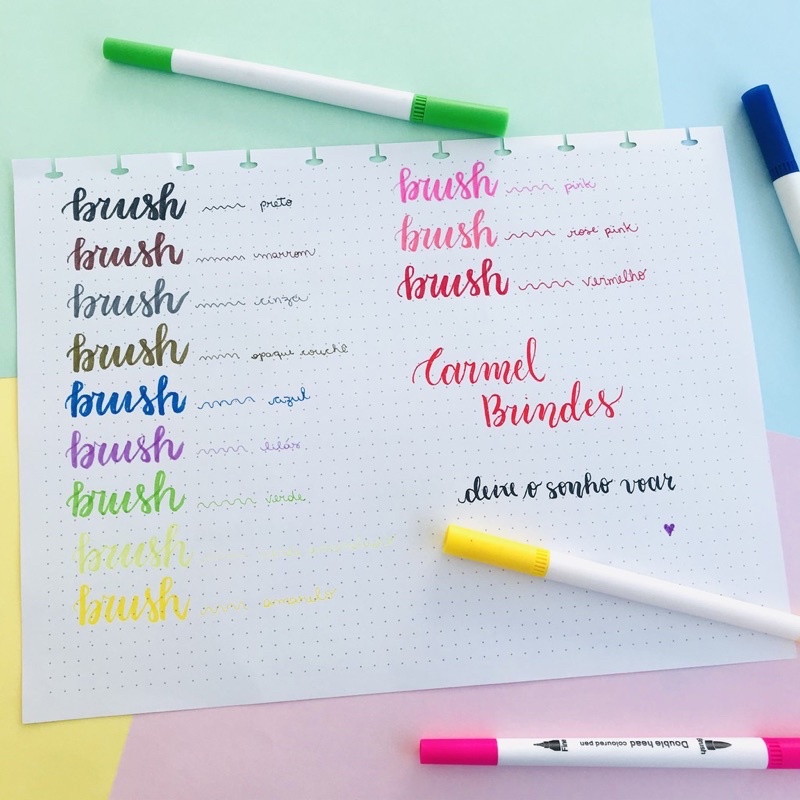 brush preto
brush marrom
brush cinza
brush opaque couché
brush azul
brush lilás
brush verde
brush
brush amarelo
brush pink
brush rose pink
brush vermelho
Carmel
Brindes
deixe o sonho voar
Fine
Double head
coloured pen
Brush